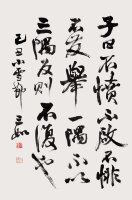 子曰不憤不啟不悱
不發舉一隅不以
三隅反則不復也
己丑小雪